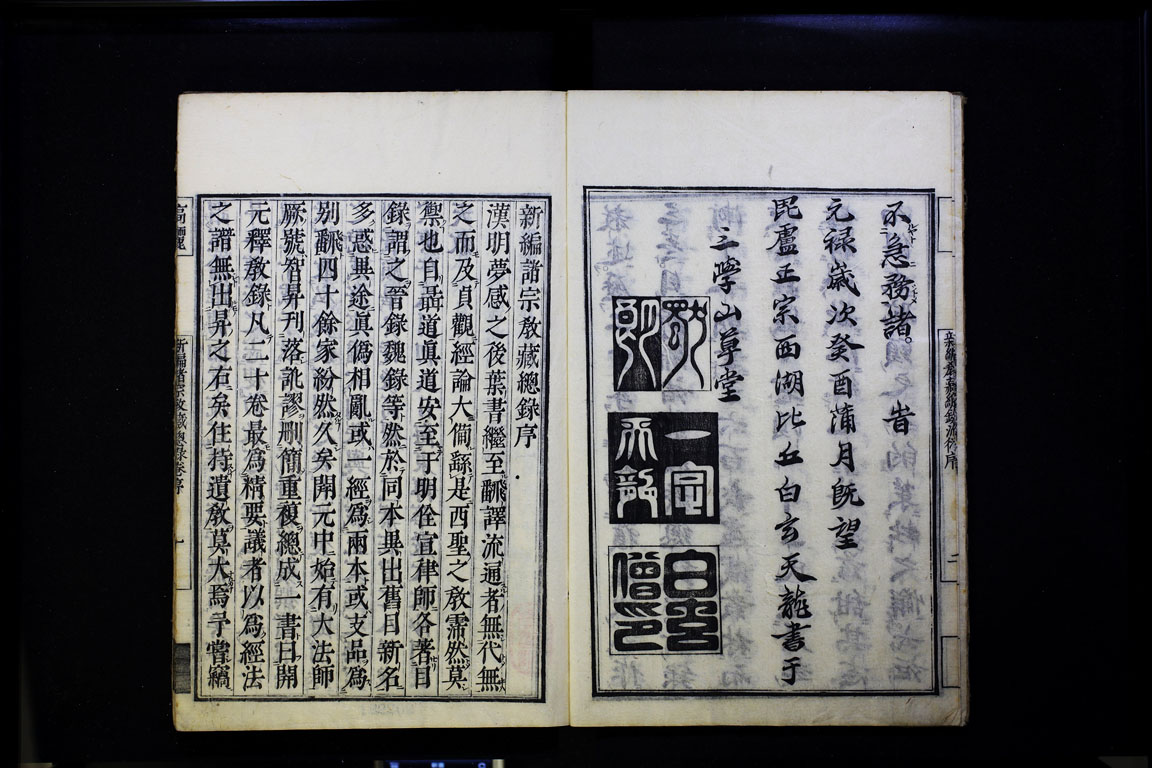 不急務諸。 旹
元禄歲次癸酉蒲月既望
毘盧正宗西湖比丘白玄天龍書于
三學山草堂
一字
白玄
僧印
新編諸宗敎藏總錄序
漢明夢感之後葉書繼至翻譯流通者無代無
之而及貞觀經論大備繇是西聖之敎霈然莫
禦也自聶道眞道安至于明佺宣律師各著目
錄謂之晉錄魏錄等然於同本異出舊目新名
多惑異途眞偽相亂或一經爲兩本或支品爲
別翻四十餘家紛然久矣開元中始有大法師
厥號智昇刊落訛謬刪簡重複總成一書曰開
元釋敎錄凡二十卷最爲精要議者以爲經法
之譜無出昇之右矣住持遺敎莫大焉予嘗竊